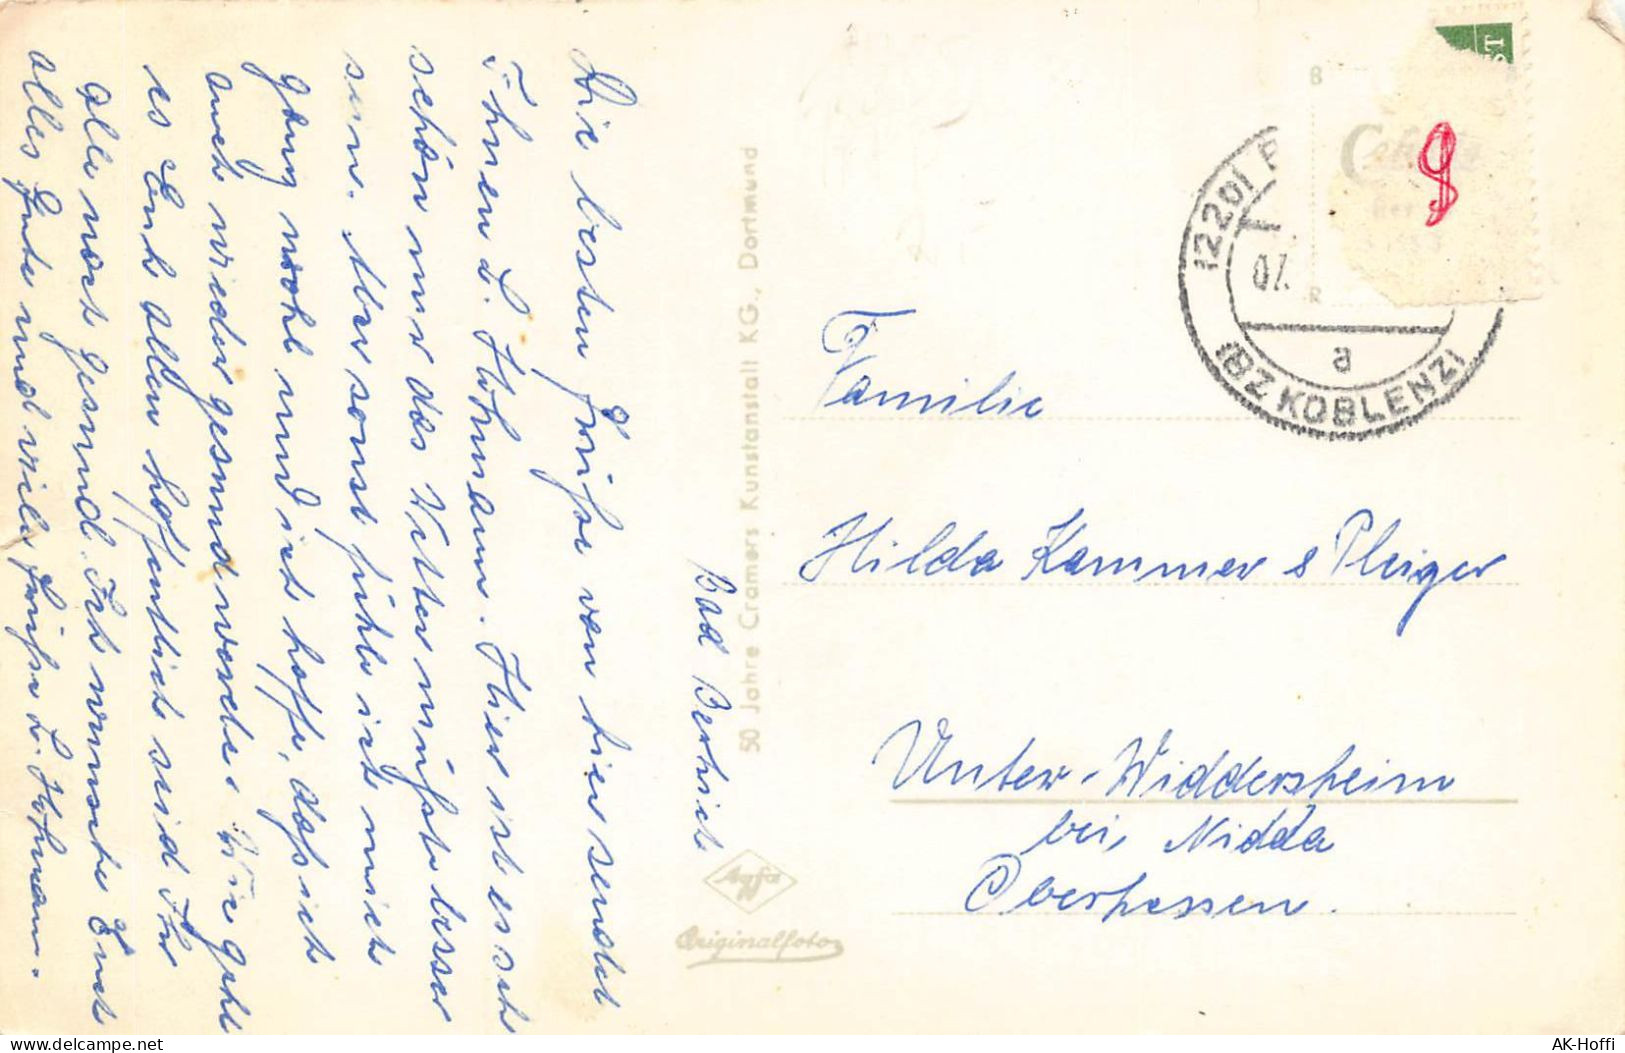 Bad Bertrich
Die besten Grüße von hier sendet
Ihnen L. Hohmann. Hier ist es sehr
schön nur das Wetter müßte besser
sein. Aber sonst fühle ich mich
ganz wohl und ich hoffe, daß ich
auch wieder gesund werde. Wie geht
es Euch allen hoffentlich seid Ihr
alle noch gesund. Ich wünsche Euch
alles Gute und viele Grüße L. Hohmann.
50 Jahre Cramers Kunstanstalt KG., Dortmund
Agfa
Originalfoto
(22b)
07.
a
(BZ KOBLENZ)
Familie
Hilda Kammer & Pleiger
Unter-Widdersheim
bei Nidda
Oberhessen.
AK-Hoffi